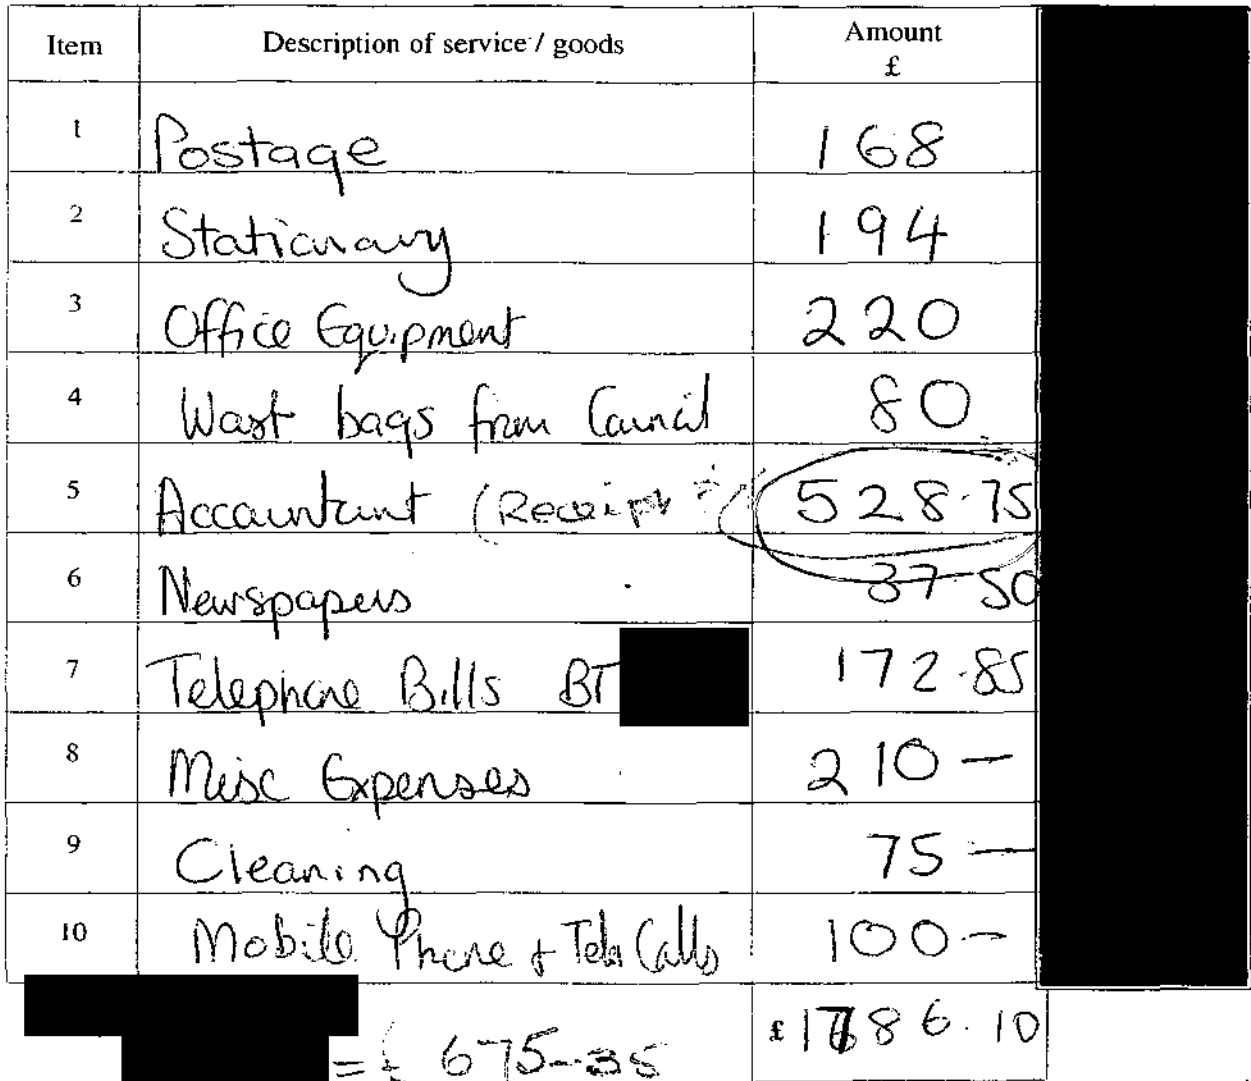 Item Description of service / goods Amount £
1 Postage 168
2 Stationary 194
3 Office Equipment 220
4 Wast bags from Council 80
5 Accountant (Receipt 528.75
6 Newspapers 37.50
7 Telephone Bills BT 172.85
8 Misc Expenses 210 —
9 Cleaning 75 —
10 Mobile Phone + Tele Calls 100 —
£ 1786.10
= £ 675-35